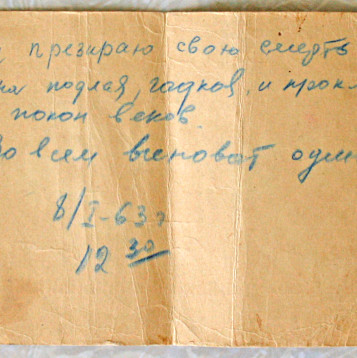 презираю свою смерть
подлая, гадкая, и прокл
покон веков.
во всем виноват один
8/I-63г
12 30